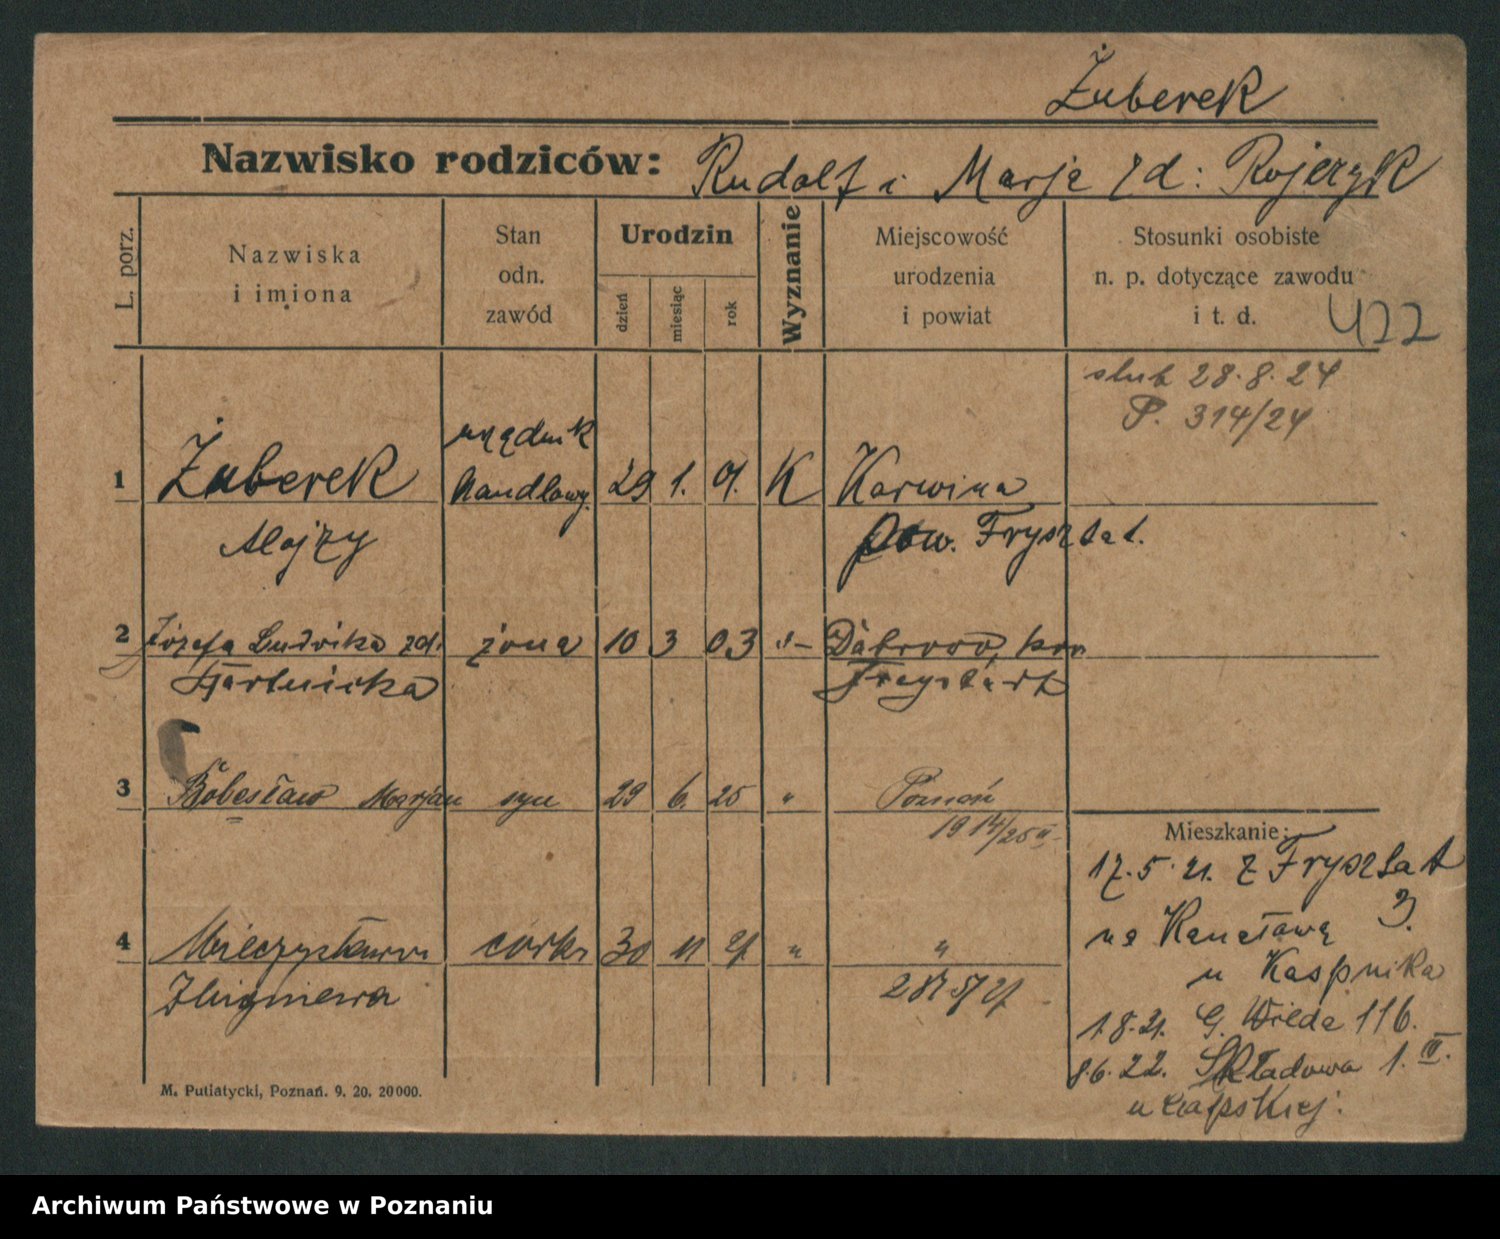 Żuberek
Nazwisko rodziców: Rudolf i Marja zd: Rojczyk
L. porz.
Nazwiska
i imiona
Stan
odn.
zawód
Urodzin
dzień
miesiąc
rok
Wyznanie
Miejscowość
urodzenia
i powiat
Stosunki osobiste
n. p. dotyczące zawodu
i t. d.
422
ślub 28.8.24
P. 314/24
1 Żuberek urzędnik handlowy. 29 1. 01. K Karwina
Alojzy pow. Frysztat.
2 Józefa Ludwika zd. żona 10 3 03 -"-
3 Bolesław Marjan syn 29 6. 25 " Poznań
1914/25 II
4 Mieczysława córka 30 11 27 " "
Zbigniewa
Mieszkanie:
17.5.21. z Frysztat
na Kanałową 3.
u Kaspnika
1.8.21. G. Wilda 116.
8.6.22. Składowa 1. III.
M. Putiatycki, Poznań. 9. 20. 20000.
Archiwum Państwowe w Poznaniu